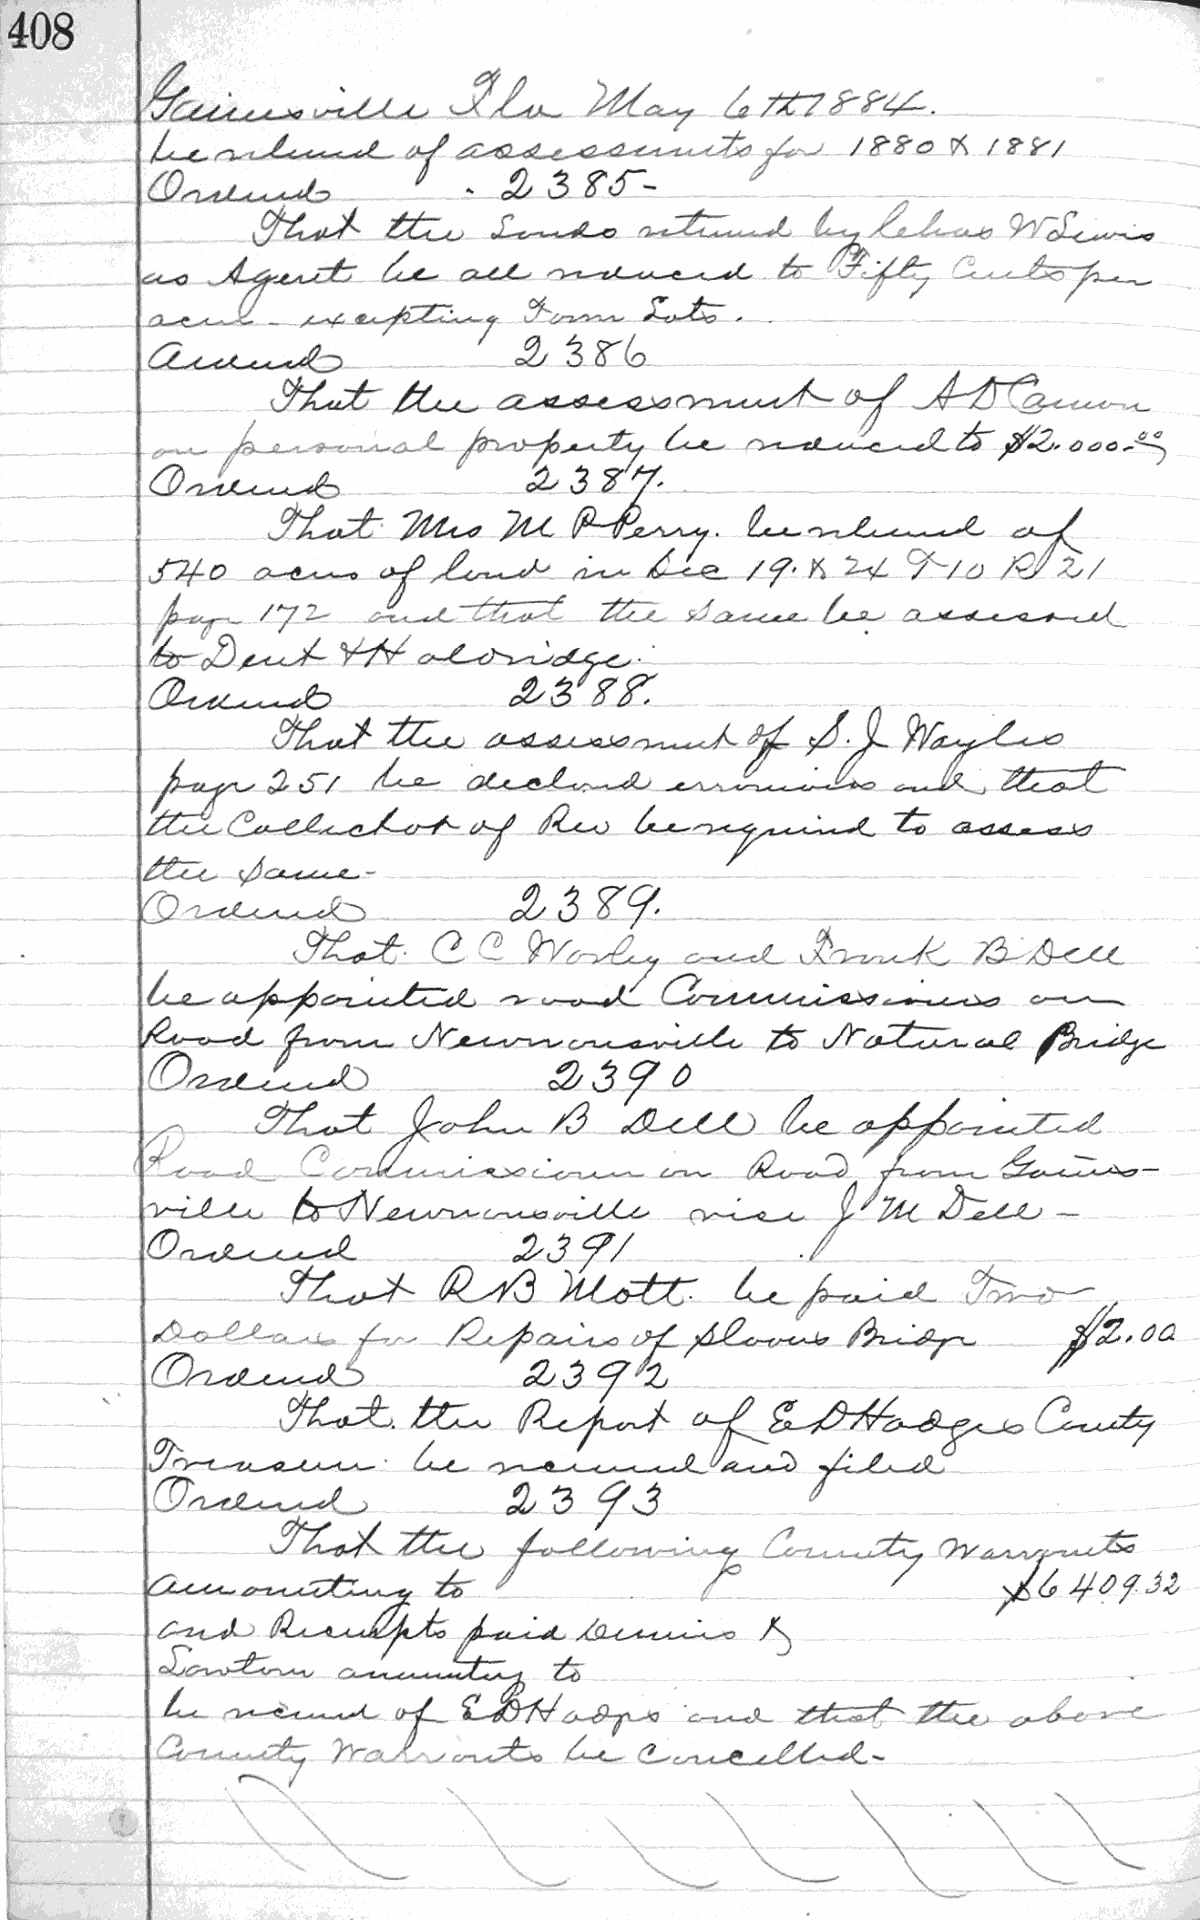 408
Gainesville Fla May 6th 1884.
be relieved of assessments for 1880 & 1881
Ordered - 2385-
That the Lands returned by Chas W Lewis
as Agent be all reduced to Fifty Cents per
acre - excepting Town Lots.
Ordered 2386
That the assessment of A D Cannon
on personal property be reduced to $2.000.00
Ordered 2387.
That Mrs M P Perry. be relieved of
540 acres of land in Sec 19. & 24 T 10 R 21
page 172 and that the same be assessed
to Dent & Haldridge.
Ordered 2388.
That the assessment of S. J Wayles
page 251 be declared erronious and that
the Collector of Rev be required to assess
the same-
Ordered 2389.
That. C C Worley and Frank B Dell
be appointed road Commissioners on
Road from Newnansville to Natural Bridge
Ordered 2390
That John B Dell be appointed
Road Commissioner on Road from Gaines-
ville to Newnansville vice J M Dell -
Ordered 2391
That R B Mott. be paid Two
Dollars for Repairs of Bridge $2.00
Ordered 2392
That. the Report of E D Hodges County
Treasurer be received and filed
Ordered 2393
That the following County Warrants
amounting to $6409.32
and Receipts paid Dennis &
amounting to
be received of E D Hodges and that the above
County Warrants be Cancelled-